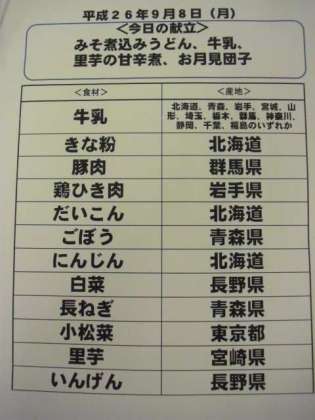 平成26年9月8日（月）
＜今日の献立＞
みそ煮込みうどん、牛乳、
里芋の甘辛煮、お月見団子
＜食材＞ ＜産地＞
牛乳 北海道、青森、岩手、宮城、山
形、埼玉、栃木、群馬、神奈川、
静岡、千葉、福島のいずれか
きな粉 北海道
豚肉 群馬県
鶏ひき肉 岩手県
だいこん 北海道
ごぼう 青森県
にんじん 北海道
白菜 長野県
長ねぎ 青森県
小松菜 東京都
里芋 宮崎県
いんげん 長野県